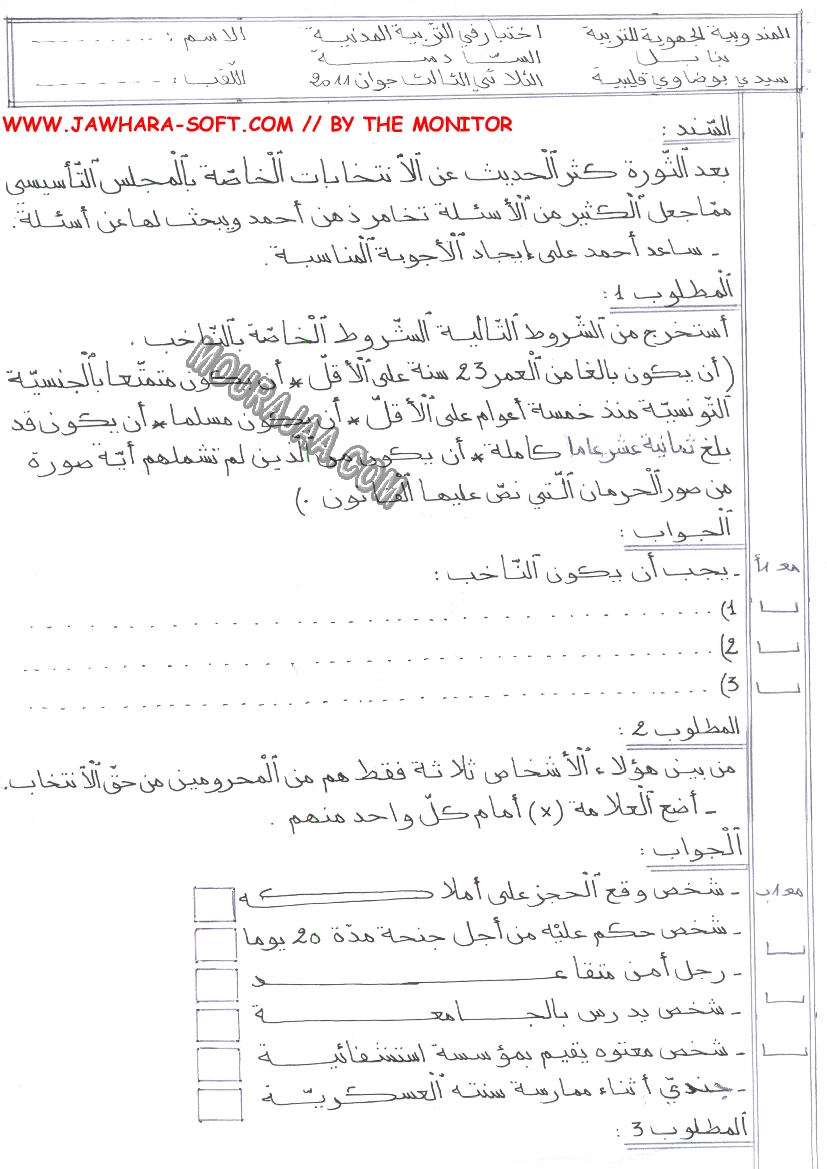 المندوبية الجهوية للتربية
بنابل
سيدي بوضاوي قليبية
اختبار في التربية المدنية
السّادسة
الثلاثي الثالث جوان 2011
الاسم : ...........
اللّقب : ...........
WWW.JAWHARA-SOFT.COM // BY THE MONITOR
السّند :
بعد الثّورة كثر الْحديث عن الانتخابات الْخاصّة بالْمجلس التّأسيسي
ممّا جعل الْكثير من الْأسئلة تخامر ذهن أحمد ويبحث لها عن أسئلة.
- ساعد أحمد على إيجاد الْأجوبة الْمناسبة.
الْمطلوب 1 :
أستخرج من الشّروط التّالية الشّروط الْخاصّة بالنّاخب .
(أن يكون بالغا من الْعمر 23 سنة على الْأقلّ * أن يكون متمتّعا بالْجنسيّة
التّونسيّة منذ خمسة أعوام على الْأقلّ * أن يكون مسلما * أن يكون قد
بلغ ثمانية عشر عاما كاملة * أن يكون من الّذين لم تشملهم أيّة صورة
من صور الْحرمان الّتي نصّ عليها الْقانون .)
MOURAJAA.COM
الْجواب :
- يجب أن يكون النّاخب : مع 1أ
1) ...........
2) ...........
3) ...........
المطلوب 2 :
من بين هؤلاء الْأشخاص ثلاثة فقط هم من الْمحرومين من حقّ الْانتخاب.
- أضع الْعلامة (x) أمام كلّ واحد منهم .
الْجواب :
- شخص وقع الْحجز على أملاكه مع 1ب
- شخص حكم عليْه من أجل جنحة مدّة 20 يوما
- رجل أمن متقاعد
- شخص يدرس بالجامعة
- شخص معتوه يقيم بمؤسسة استشفائية
- جنديّ أثناء ممارسة سنته الْعسكريّة
المطلوب 3 :